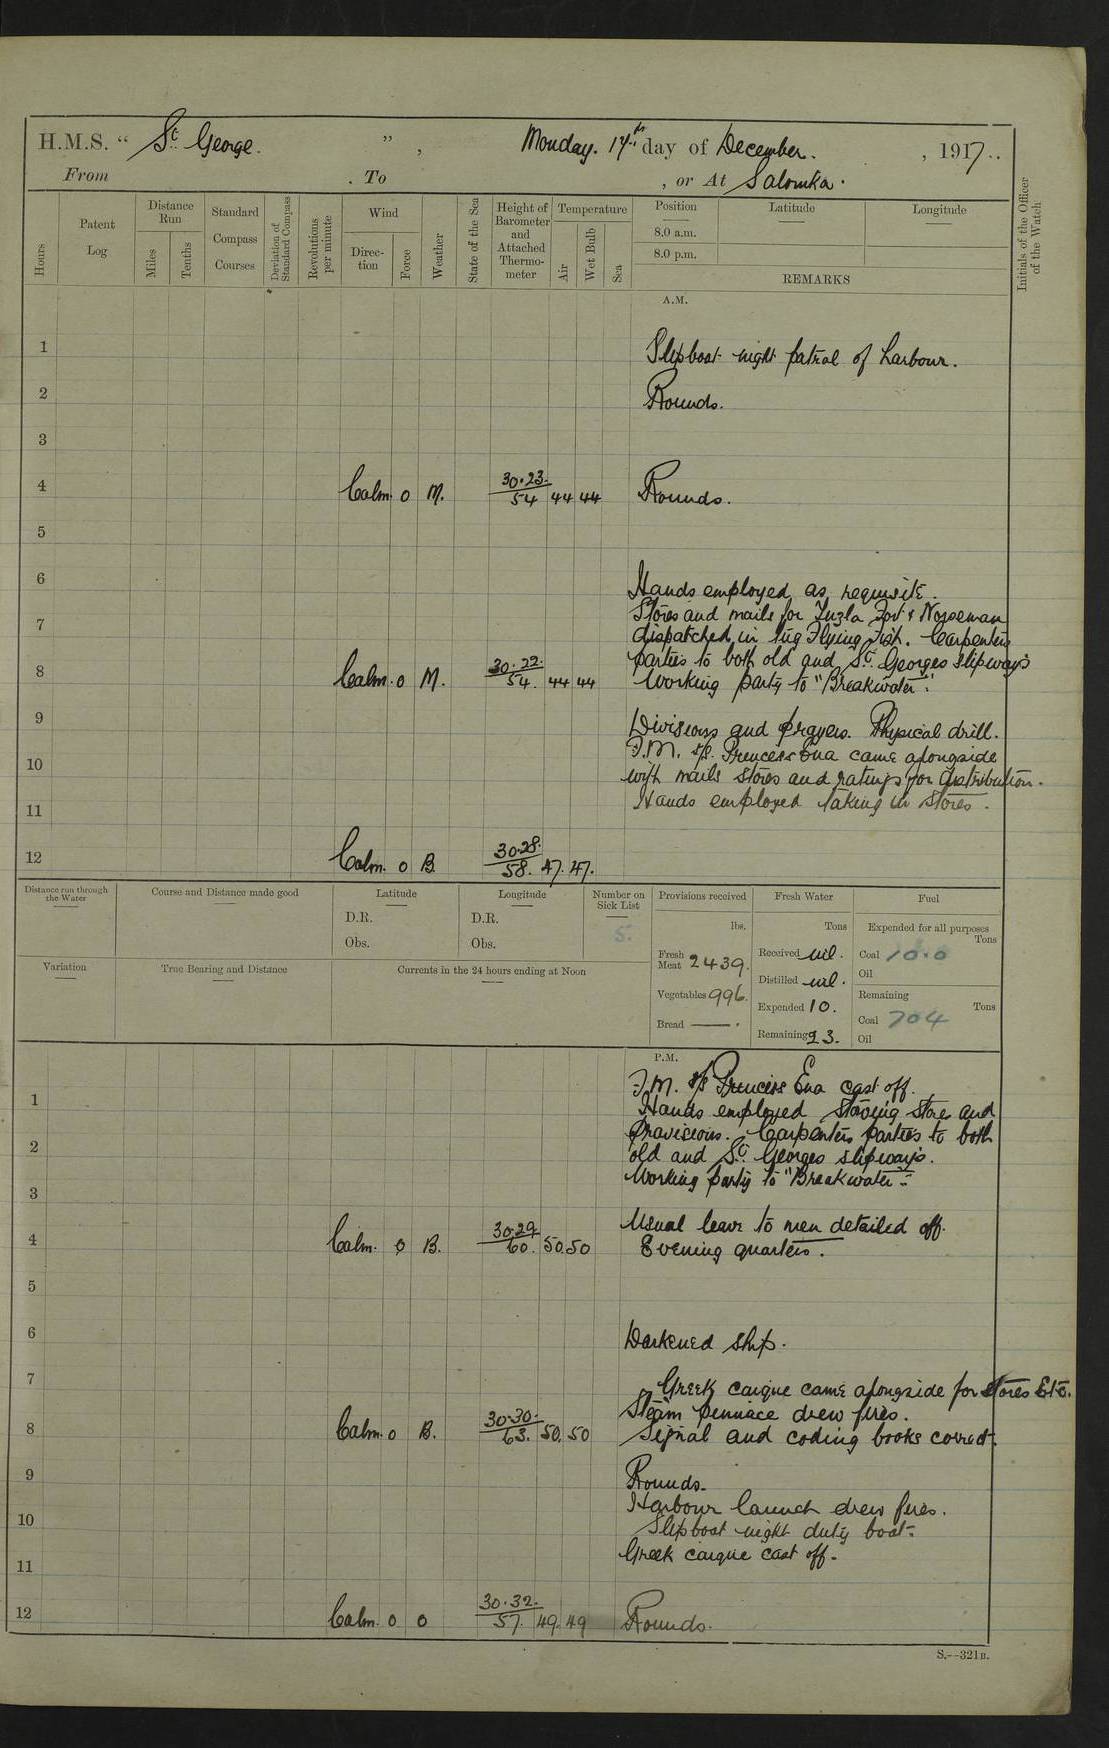 H.M.S. “ St. George. ” , Monday. 17th day of December. , 1917..
From . To , or At Salonika.
Hours
Patent Log
Distance Run
Miles
Tenths
Standard Compass Courses
Deviation of Standard Compass
Revolutions per minute
Wind
Direction
Force
Weather
State of the Sea
Height of Barometer and Attached Thermometer
Temperature
Air
Wet Bulb
Sea
Position
8.0 a.m.
8.0 p.m.
Latitude
Longitude
REMARKS
Initials of the Officer of the Watch
A.M.
1 Slipboat night patrol of harbour.
2 Rounds.
3
4 Calm. 0 M. 30.23. 54 44 44 Rounds.
5
6 Hands employed as requisite.
Stores and mails for Tuzla Fort & Norseman
7 dispatched in tug Flying Fish. Carpenters
parties to both old and St. Georges slipways
8 Calm. 0 M. 30.22. 54. 44 44 Working party to "Breakwater".
9 Divisions and prayers. Physical drill.
F.M. s/s. Princess Ena came alongside
10 with mails stores and ratings for distribution.
Hands employed taking in stores.
11
12 Calm. 0 B. 30.28. 58. 47. 47.
Distance run through the Water
Course and Distance made good
Latitude
D.R.
Obs.
Longitude
D.R.
Obs.
Number on Sick List
5.
Provisions received
lbs.
Fresh Meat 2439.
Vegetables 996.
Bread — .
Fresh Water
Tons
Received nil.
Distilled nil.
Expended 10.
Remaining 23.
Fuel
Expended for all purposes
Tons
Coal 10.0
Oil
Remaining
Tons
Coal 704
Oil
Variation
True Bearing and Distance
Currents in the 24 hours ending at Noon
P.M.
F.M. s/s Princess Ena cast off.
1 Hands employed stowing store and
provisions. Carpenters parties to both
2 old and St. Georges slipways.
Working party to "Breakwater".
3
Usual leave to men detailed off.
4 Calm. 0 B. 30.29. 60. 50. 50 Evening quarters.
5
6 Darkened ship.
7 Greek caique came alongside for stores Etc.
Steam pinnace drew fires.
8 Calm. 0 B. 30.30. 63. 50. 50 Signal and coding books correct.
9 Rounds.
Harbour launch drew fires.
10 Slipboat night duty boat.
Greek caique cast off.
11
12 Calm. 0 0 30.32. 57. 49. 49 Rounds.
S.—321B.